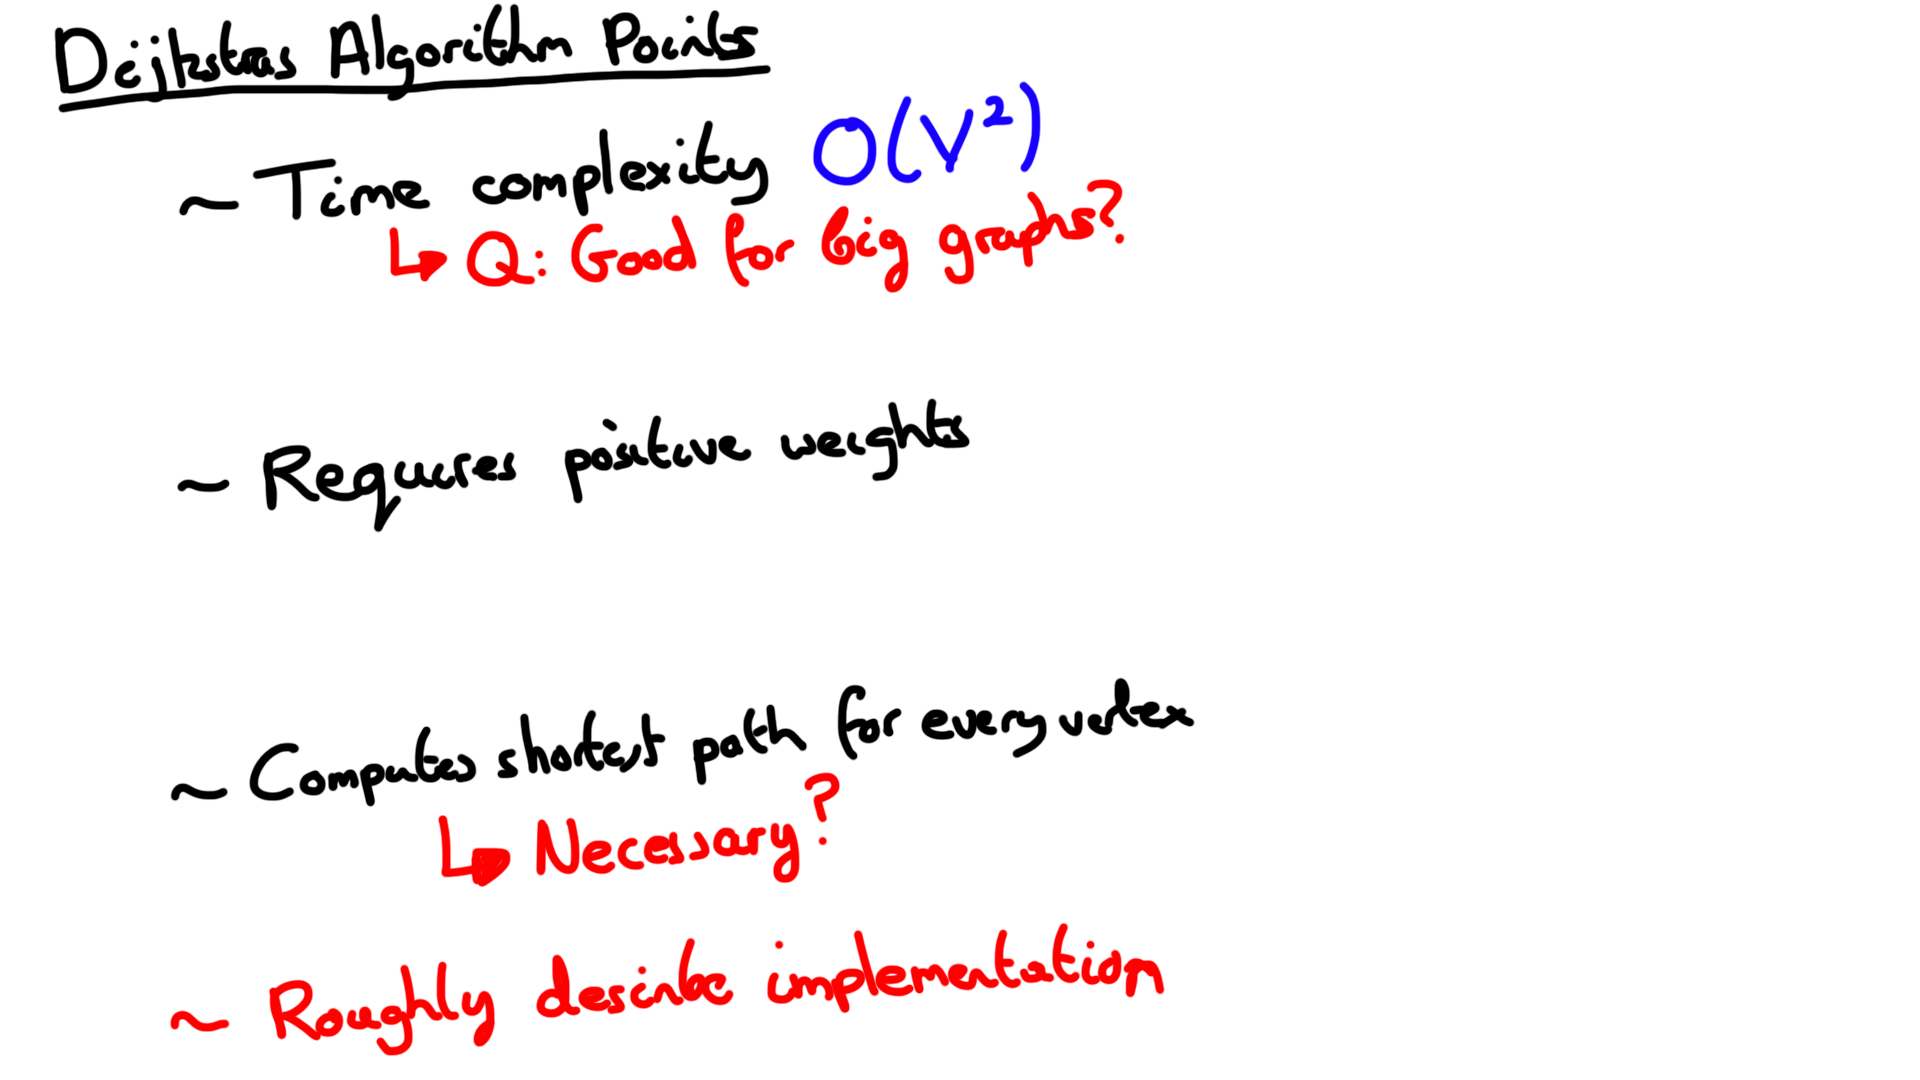 Dijkstras Algorithm Points
~ Time complexity O(V²)
↳ Q: Good for big graphs?
~ Requires positive weights
~ Computes shortest path for every vertex
↳ Necessary?
~ Roughly describe implementation